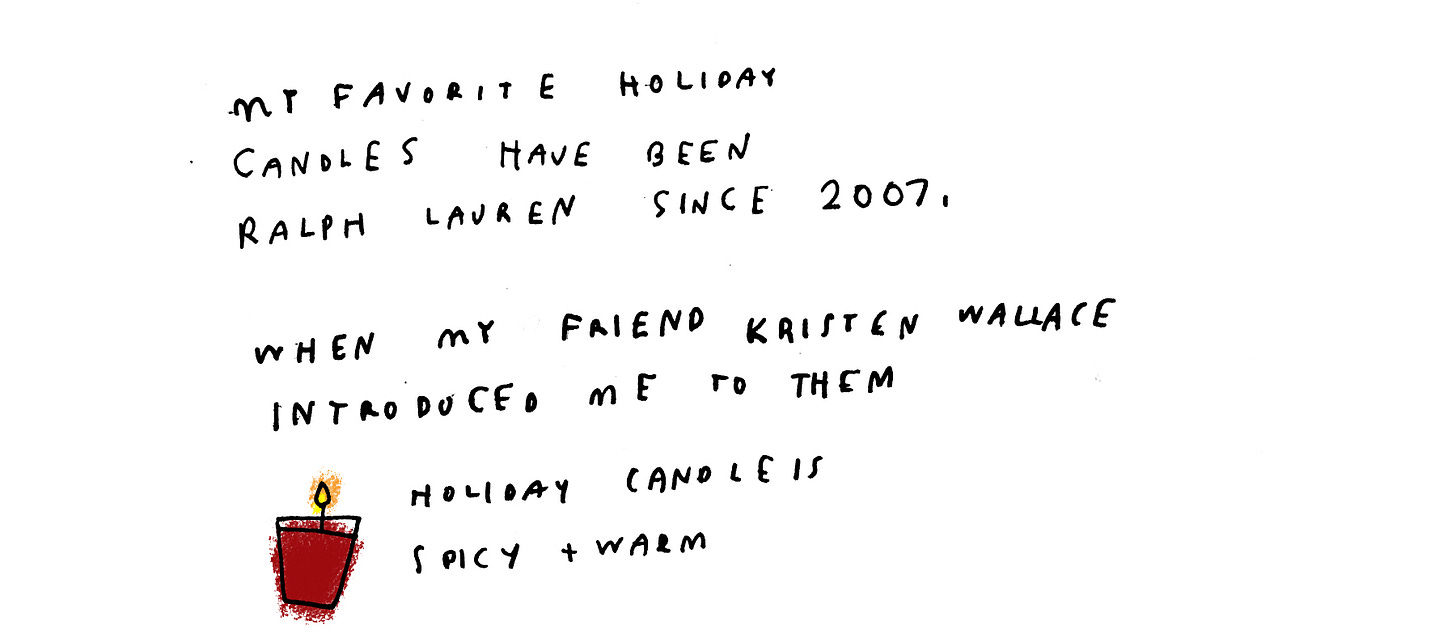 MY FAVORITE HOLIDAY
CANDLES HAVE BEEN
RALPH LAUREN SINCE 2007.
WHEN MY FRIEND KRISTEN WALLACE
INTRODUCED ME TO THEM
HOLIDAY CANDLE IS
SPICY + WARM